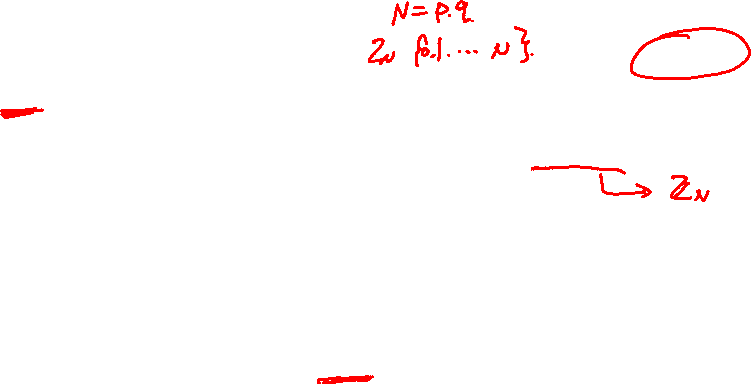 N = p.q
Z_N {0.1. ... N}.
Z_N